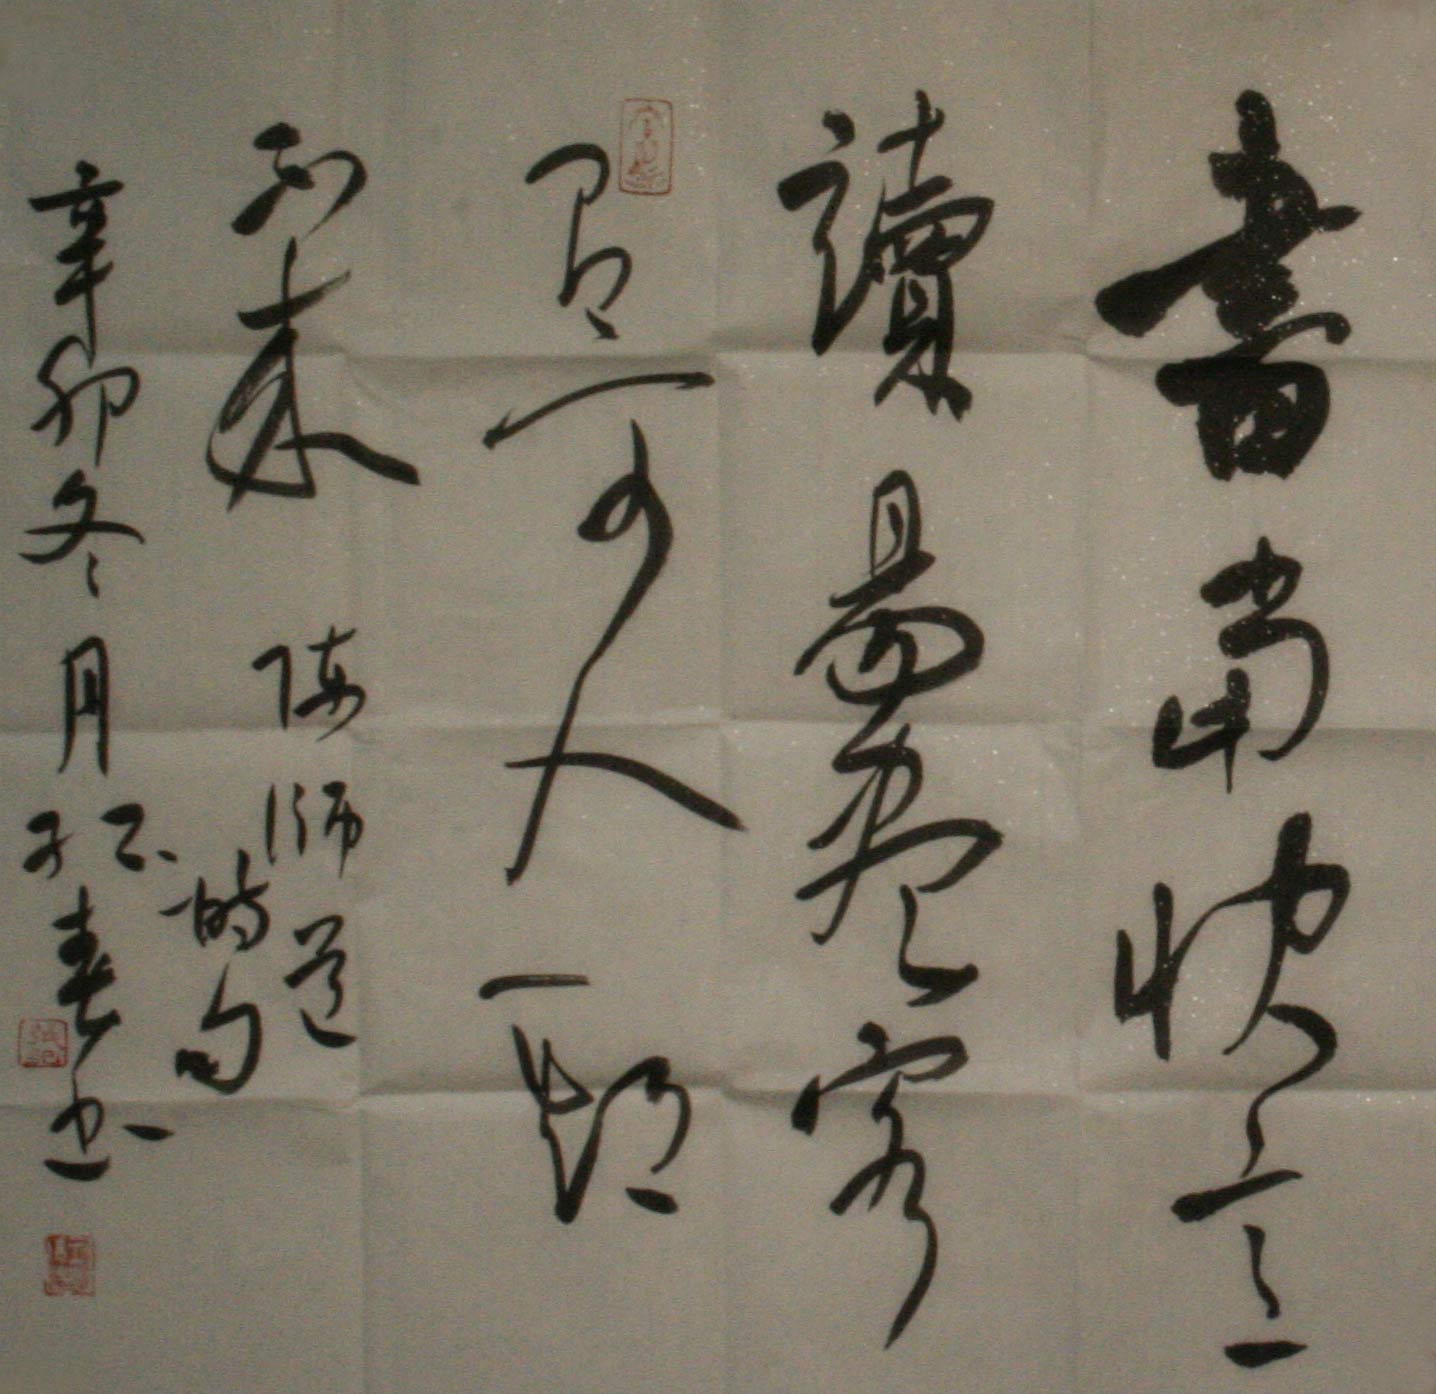 書當快意
讀易盡客
有可人期
不来 陈师道
诗句
辛卯冬月
春书